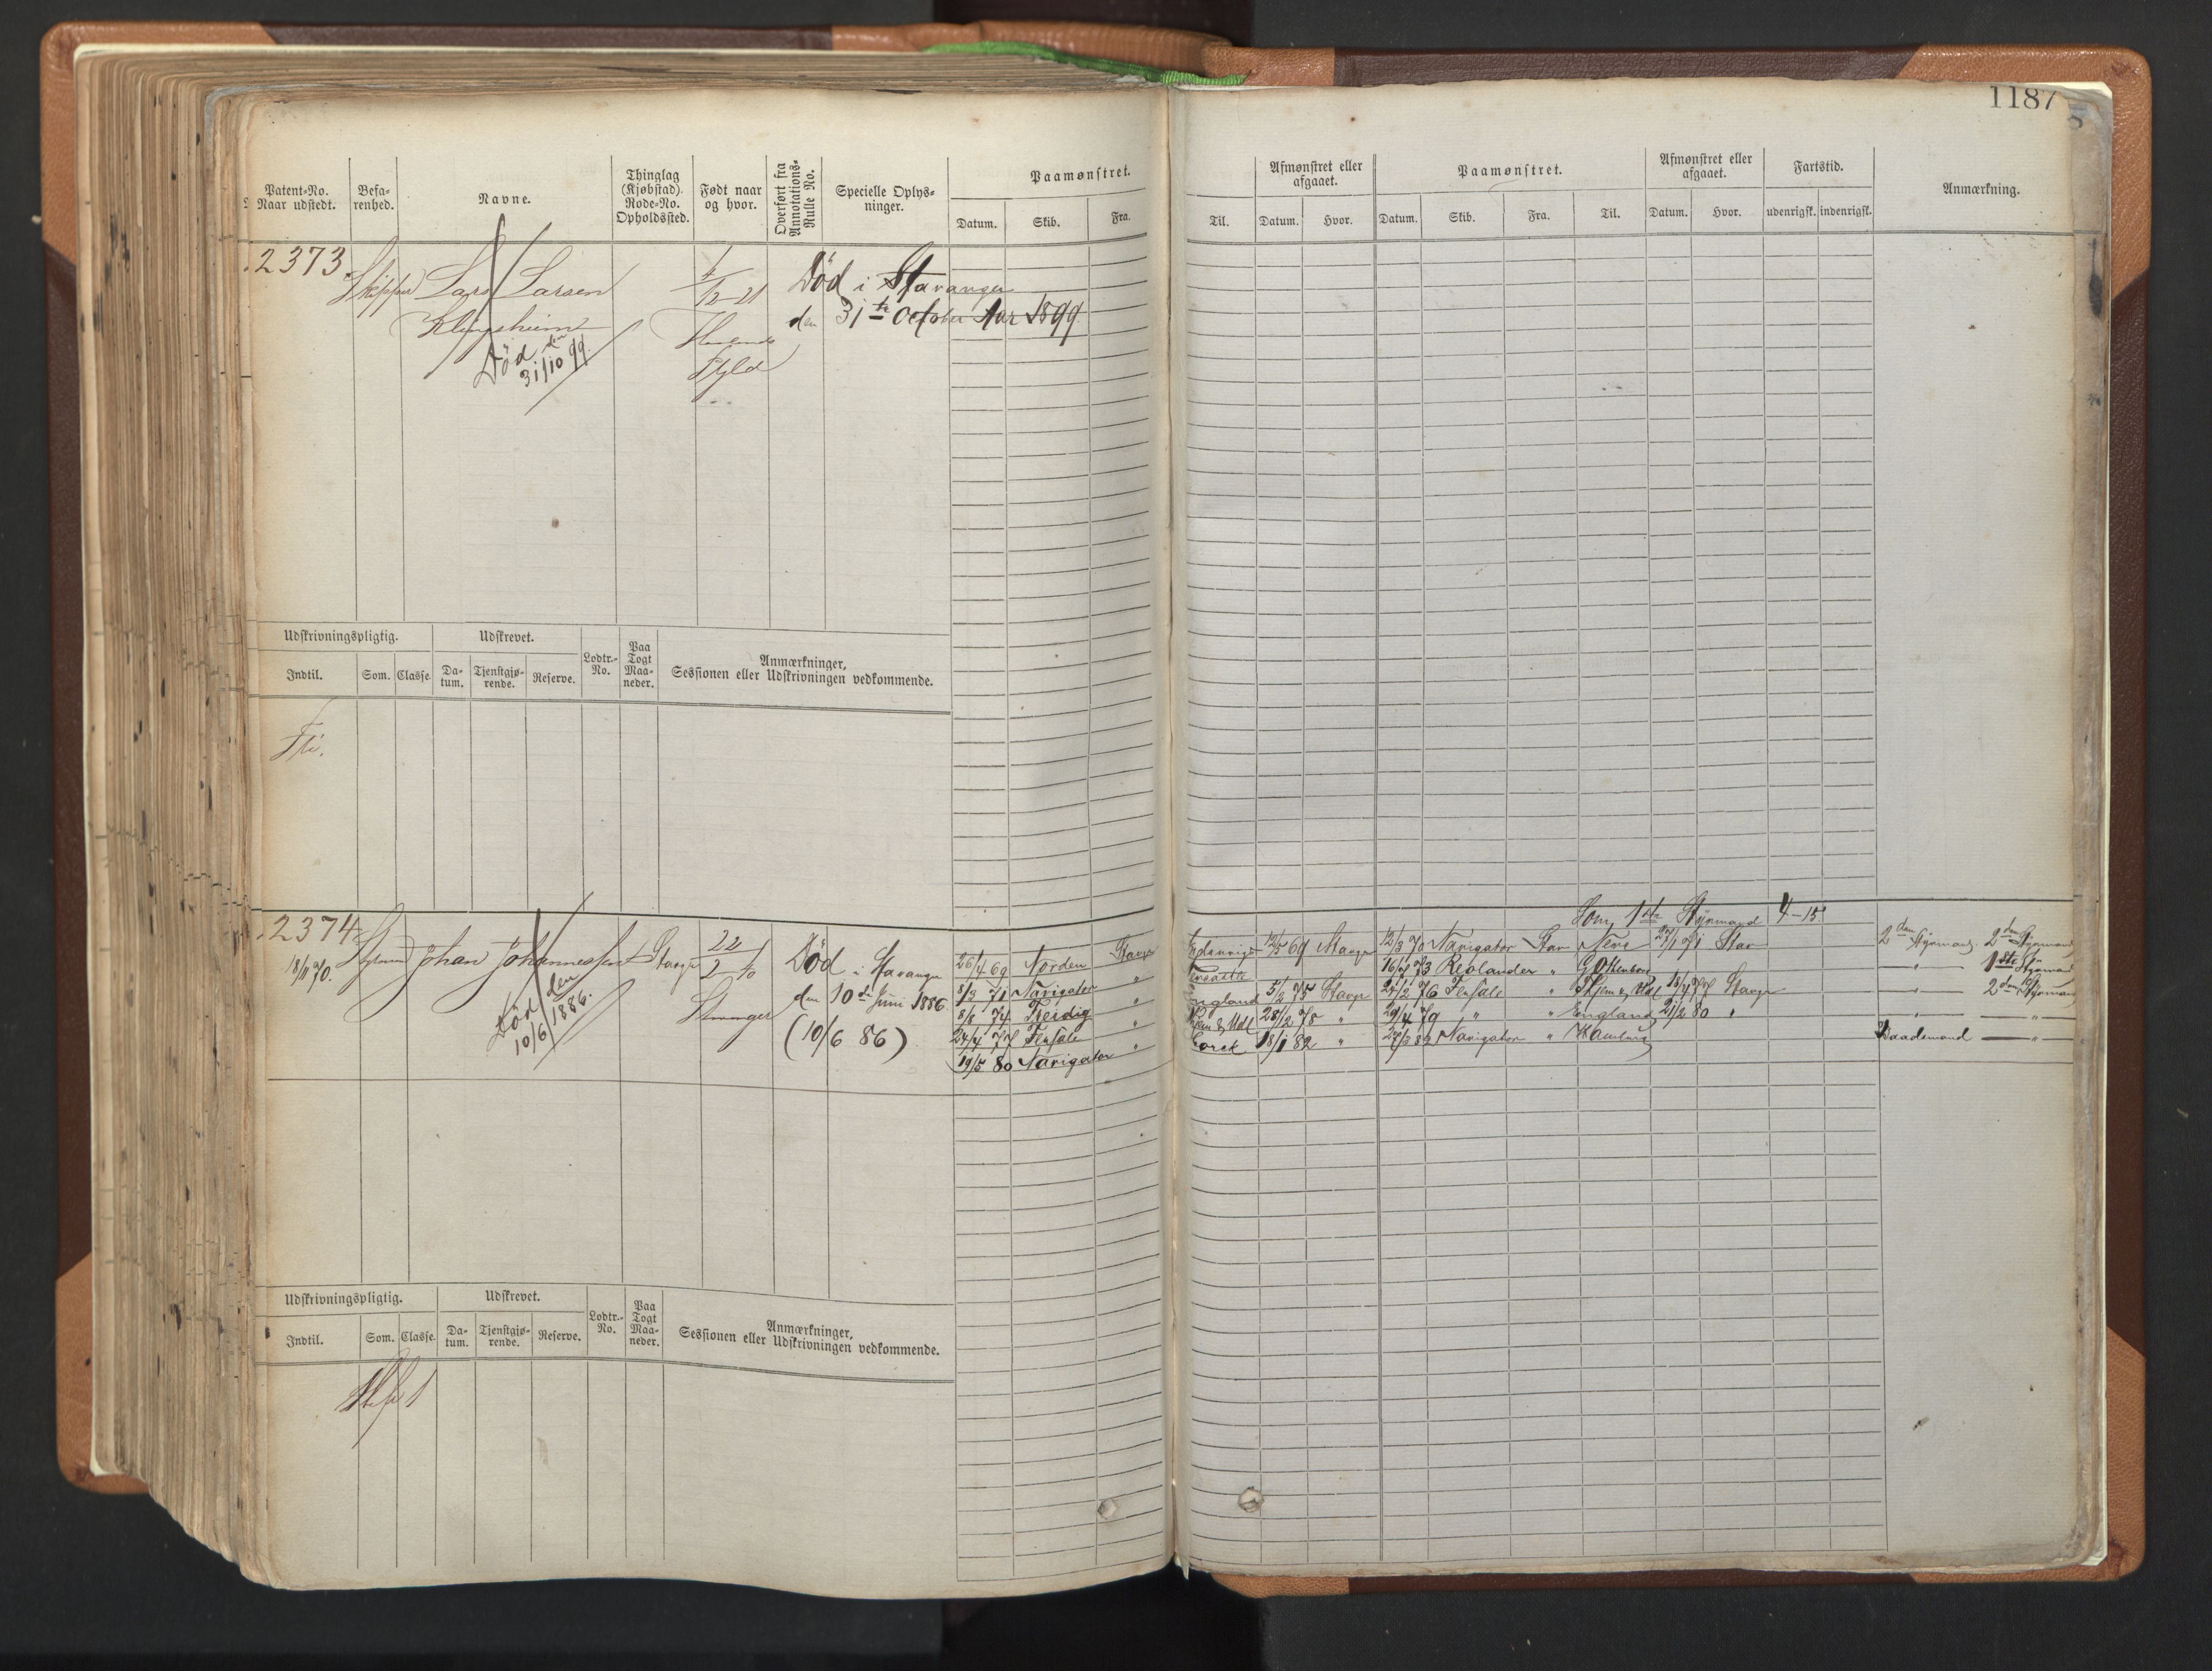 1187
Patent-No. Naar udstedt.
Befarenhed.
Navne.
Thinglag (Kjøbstad). Rode-No. Opholdssted.
Født naar og hvor.
Overført fra Annotations-Rulle No.
Specielle Oplysninger.
Paamønstret.
Datum. Skib. Fra.
Til.
Afmønstret eller afgaaet.
Datum. Hvor.
Paamønstret.
Datum. Skib. Fra. Til.
Afmønstret eller afgaaet.
Datum. Hvor.
Fartstid.
udenrigsk. indenrigsk.
Anmærkning.
2373.
Skipper Lars Larsen
Klingsheim
Død den
31/10 99.
Død i Stavanger
den 31te October Aar 1899.
Udskrivningspligtig. Udskrevet. Lodtr.-No. Paa Togt Maaneder. Anmærkninger, Sessionen eller Udskrivningen vedkommende.
Indtil. Som. Classe. Datum. Tjenstgjørende. Reserve.
Som 1ste Styrmand 4-15
2374
18/11 70.
Johan Johannessen
22/2 40
Stavanger
Død den
10/6 1886.
Død i Stavanger
den 10de Juni 1886.
(10/6 86)
26/4 69 Norden
8/3 71 Navigator "
8/8 74 Reidig "
24/4 77 "
19/5 80 Navigator "
69
England 5/2 75
28/2 78 "
Corck 18/1 82 "
12/3 70 Navigator Stav Neva 27/1 71 Stav
73 "
24/2 76 "
29/4 79 " " England 21/2 80 "
Navigator " Hamburg
2den Styrmand 2den Styrmand
" 1ste Styrmand
" 2den Styrmand
" "
Baadsmand "
Udskrivningspligtig. Udskrevet. Lodtr.-No. Paa Togt Maaneder. Anmærkninger, Sessionen eller Udskrivningen vedkommende.
Indtil. Som. Classe. Datum. Tjenstgjørende. Reserve.